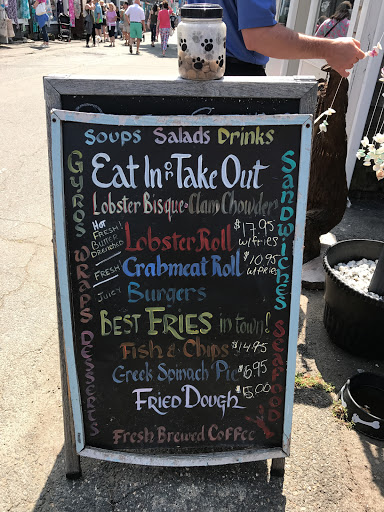 Soups Salads Drinks
Eat In or Take Out
Lobster Bisque - Clam Chowder
Hot
Fresh!
Butter
Drenched
Lobster Roll $17.95 w/fries
Fresh! Crabmeat Roll $10.95 w/fries
Juicy Burgers
Best Fries in town!
Fish & Chips $14.95
Greek Spinach Pie $6.95
Fried Dough $5.00
Fresh Brewed Coffee
Gyros Wraps Desserts
Sandwiches Seafood